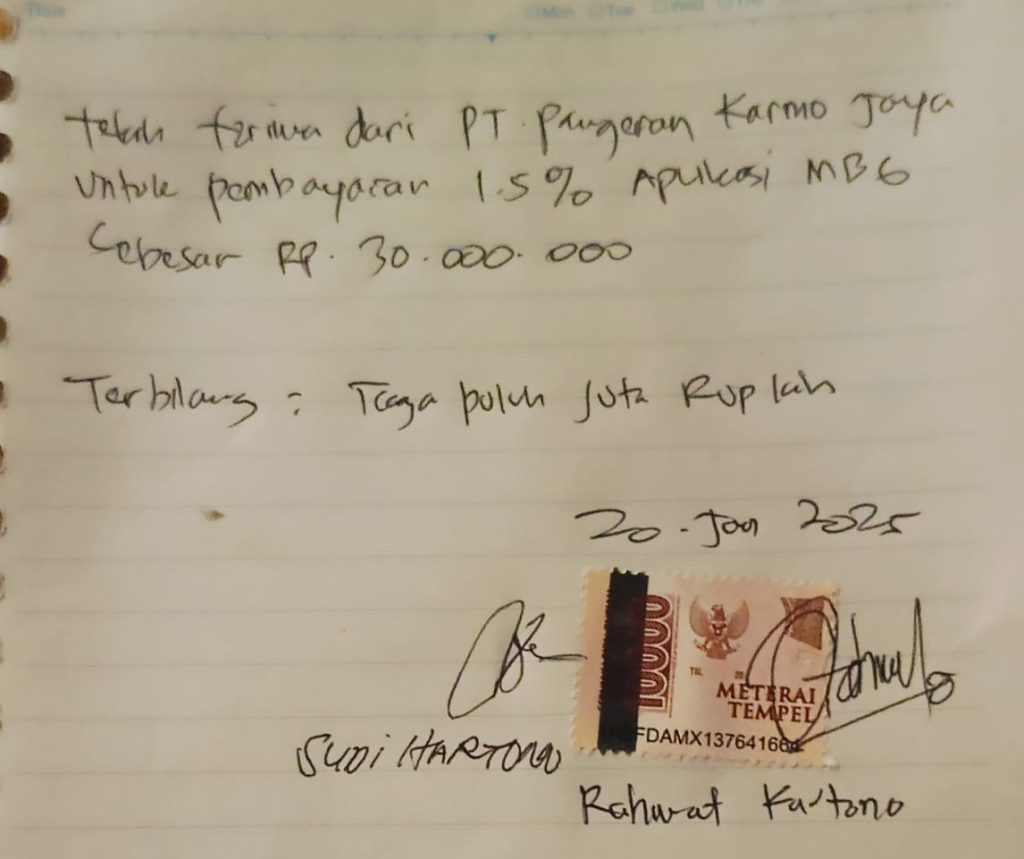 Date Mon Tue Wed Thu
telah terima dari PT. Pangeran Karmo Jaya
untuk pembayaran 1.5% Aplikasi MBG
Sebesar Rp. 30.000.000
Terbilang : Tiga puluh Juta Rupiah
20 - Jan 2025
10000
TGL. 20
METERAI
TEMPEL
FDAMX137641664
SUDI HARTONO
Rahmat Kartono